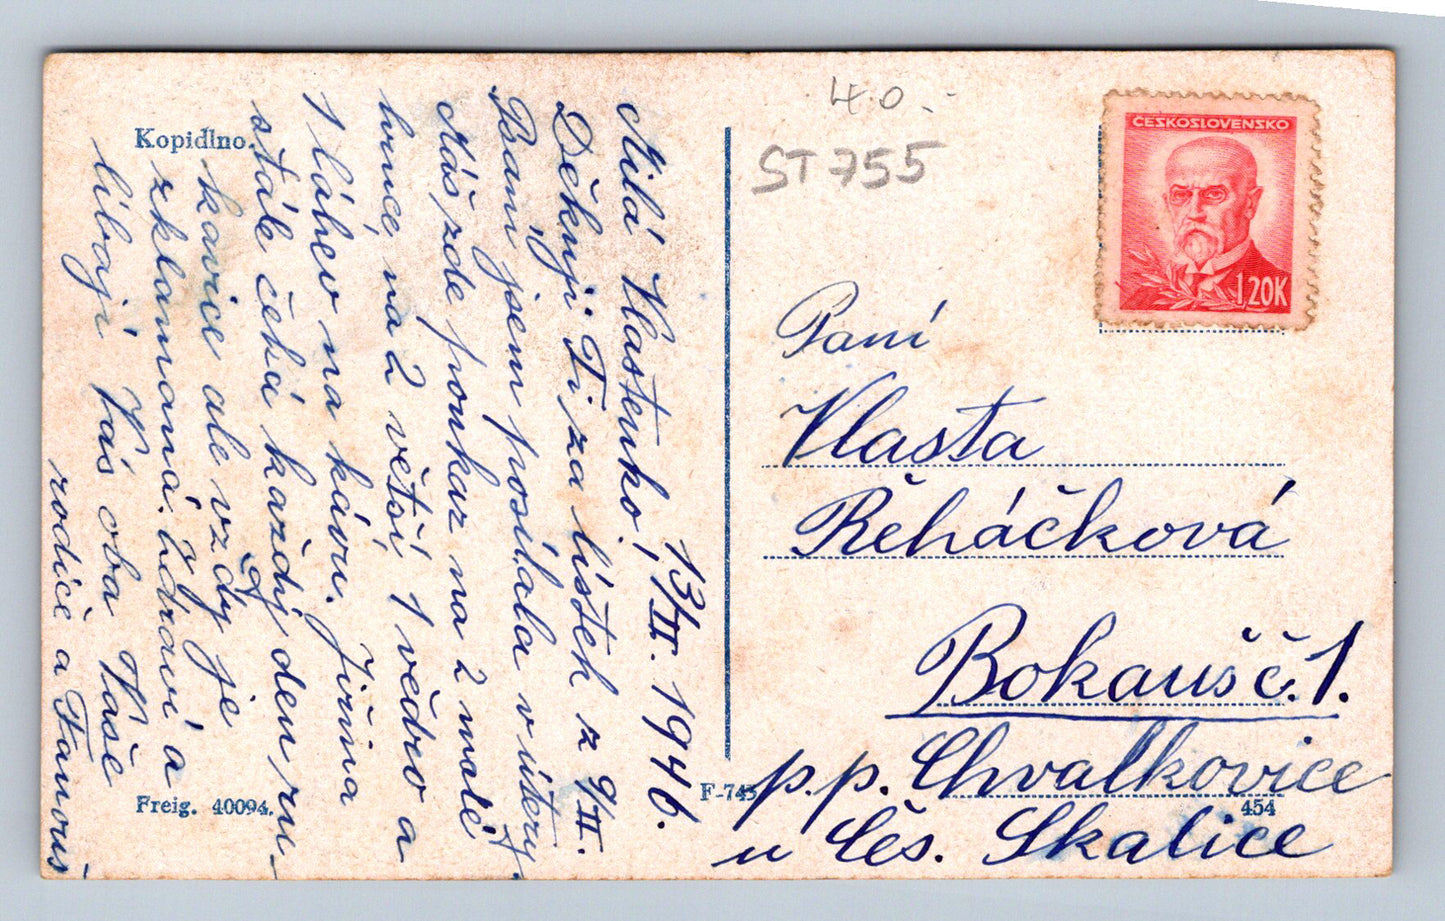 Kopidlno.
13/II. 1946.
Milá Vlastenko!
Děkuji Ti za lístek z 9/II.
Baní jsem posílala v úterý.
Máš zde poukaz na 2 malé
hrnce, na 2 větší, 1 vědro a
1 láhev na kávu. Jiřina
stále čeká každý den ru-
kavice ale vždy je
zklamaná. Zdraví a
líbají Vás oba Vaše
rodiče a Fanouš
Freig. 40094.
F-745
454
40.-
ST 755
ČESKOSLOVENSKO
1,20K
Paní
Vlasta
Řeháčková
Bokauš č. 1.
p.p. Chvalkovice
u Čes. Skalice